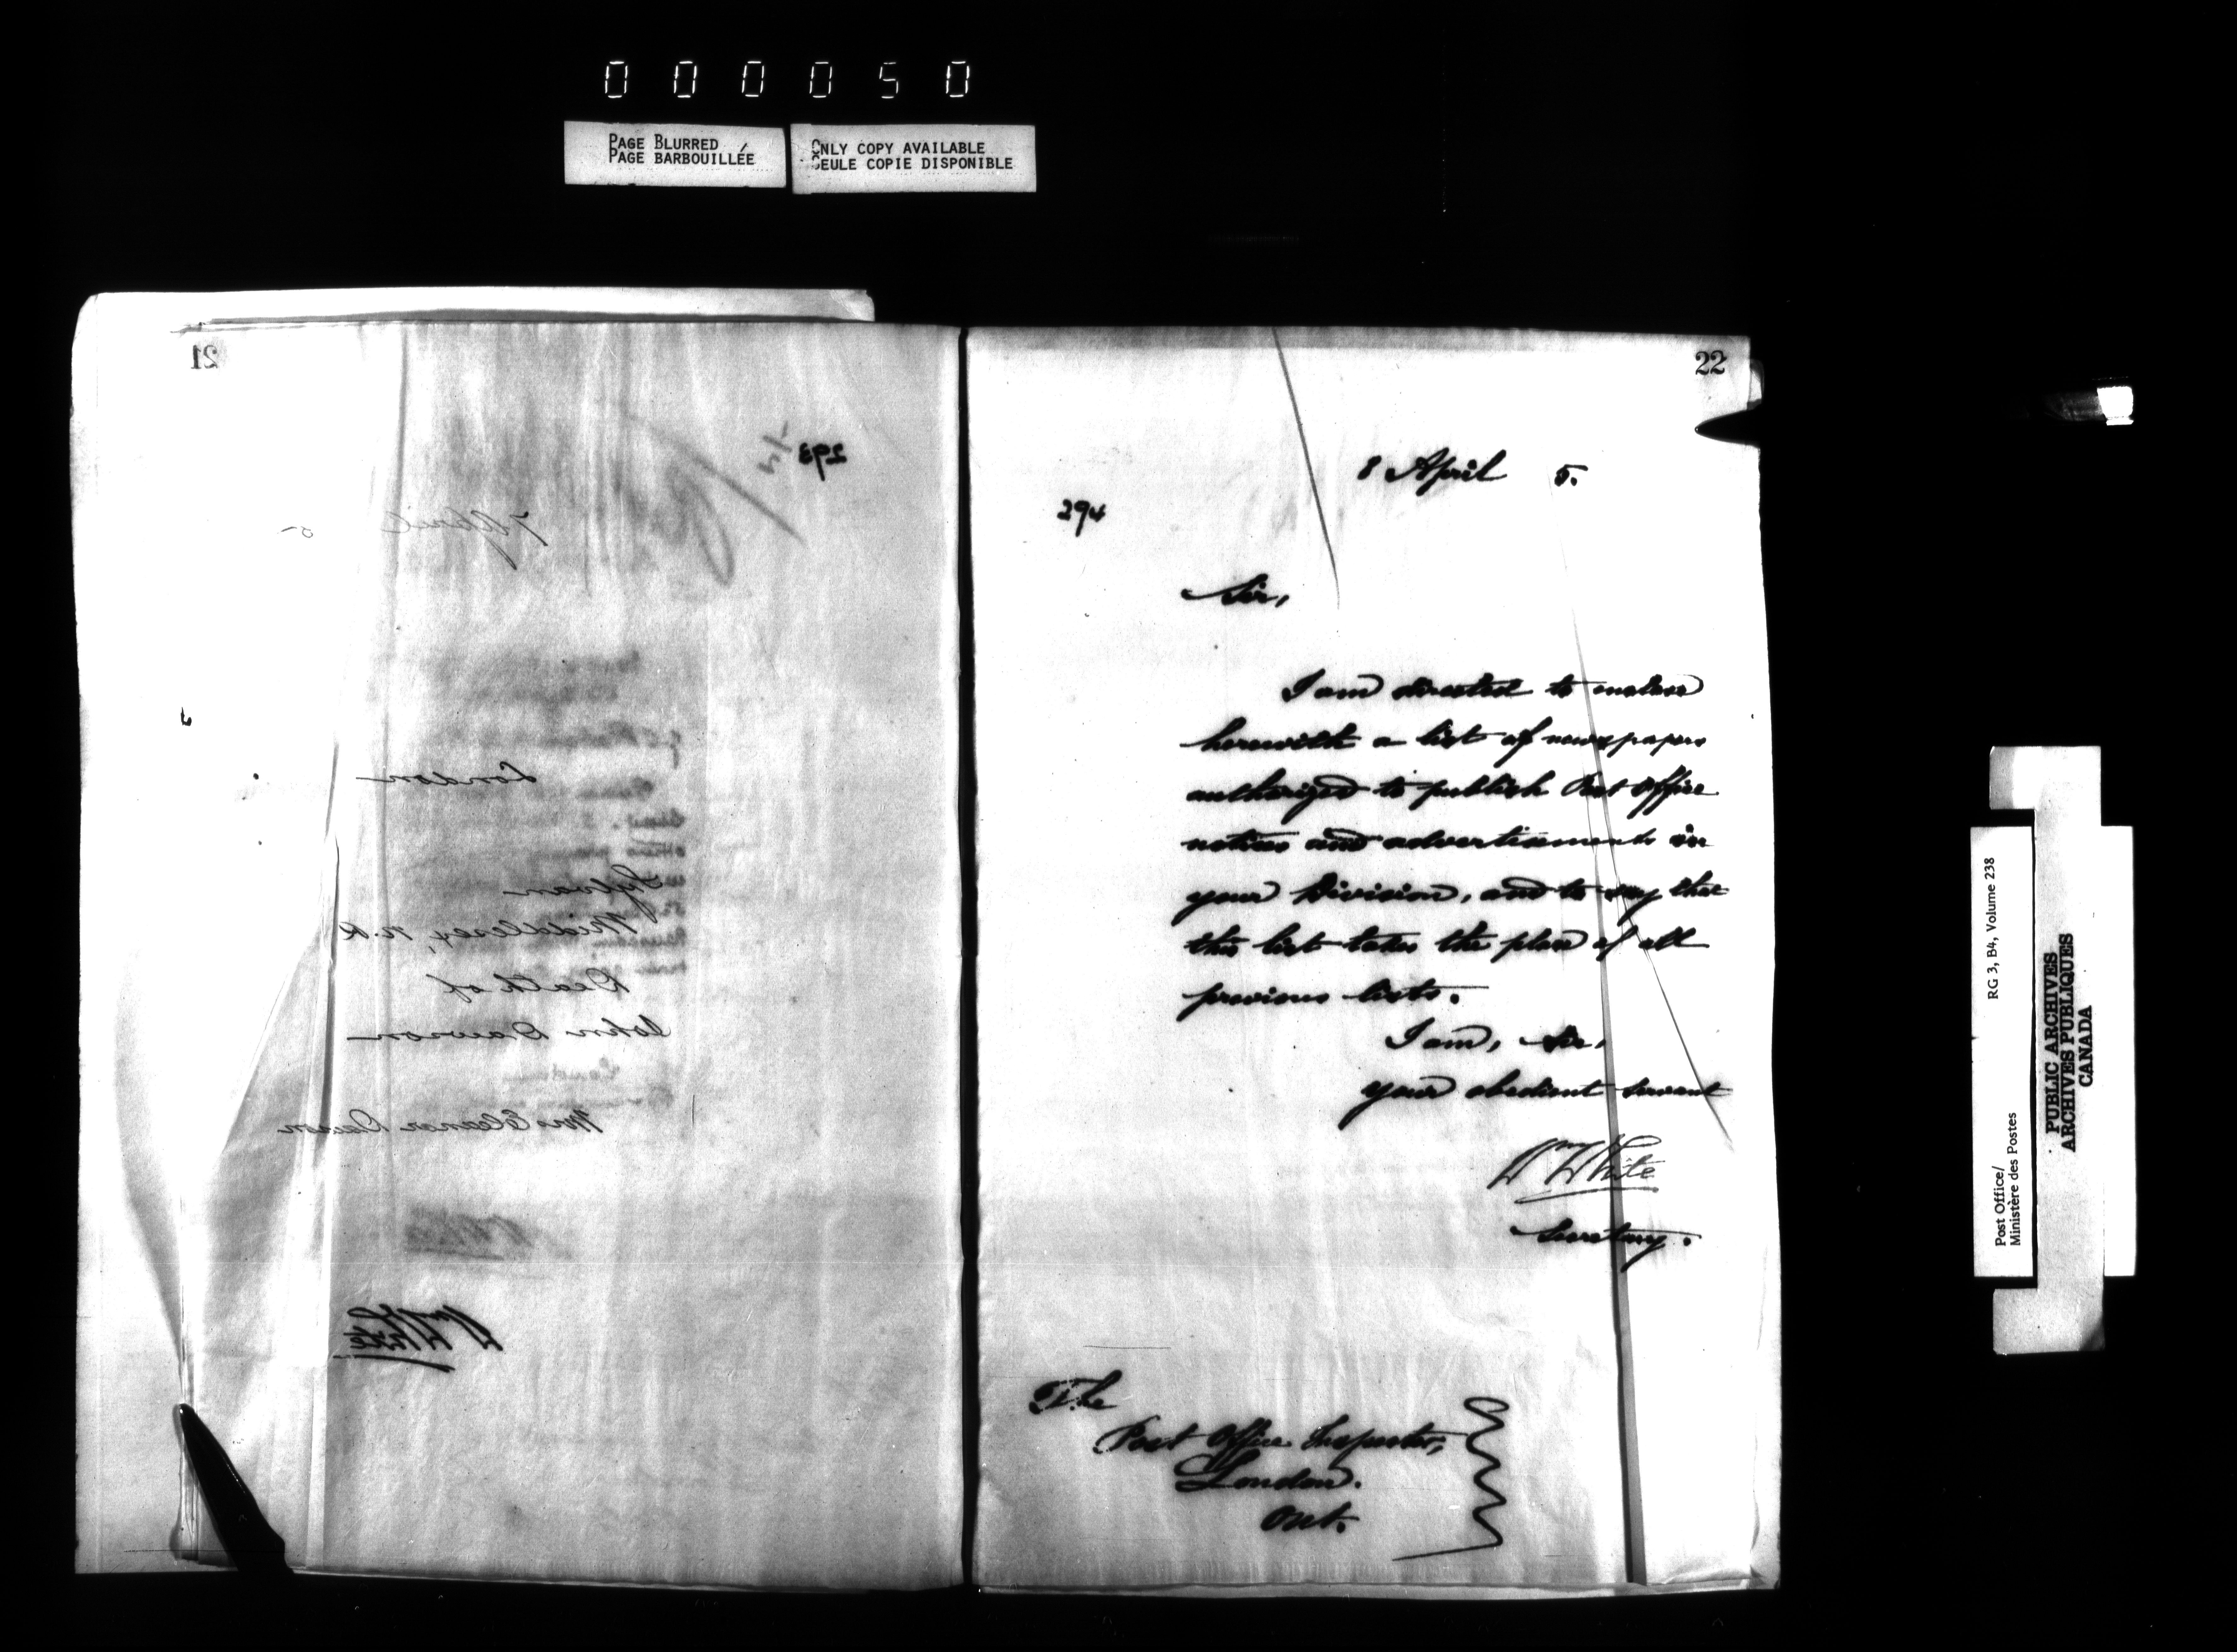 000050
PAGE BLURRED
PAGE BARBOUILLÉE
ONLY COPY AVAILABLE
SEULE COPIE DISPONIBLE
21
293
7 April 5
London
Sylvan
Middlesex, N.R
Death of
John Dawson
Mrs Eleanor Dawson
Wm White
22
8 April 5.
294
Sir,
I am directed to enclose
herewith a list of newspapers
authorized to publish Post Office
notices and advertisements in
your Division, and to say that
this list takes the place of all
previous lists.
I am, Sir,
your obedient servant
Wm White
Secretary.
The
Post Office Inspector,
London.
Ont.
Post Office/
Ministère des Postes
RG 3, B4, Volume 238
PUBLIC ARCHIVES
ARCHIVES PUBLIQUES
CANADA